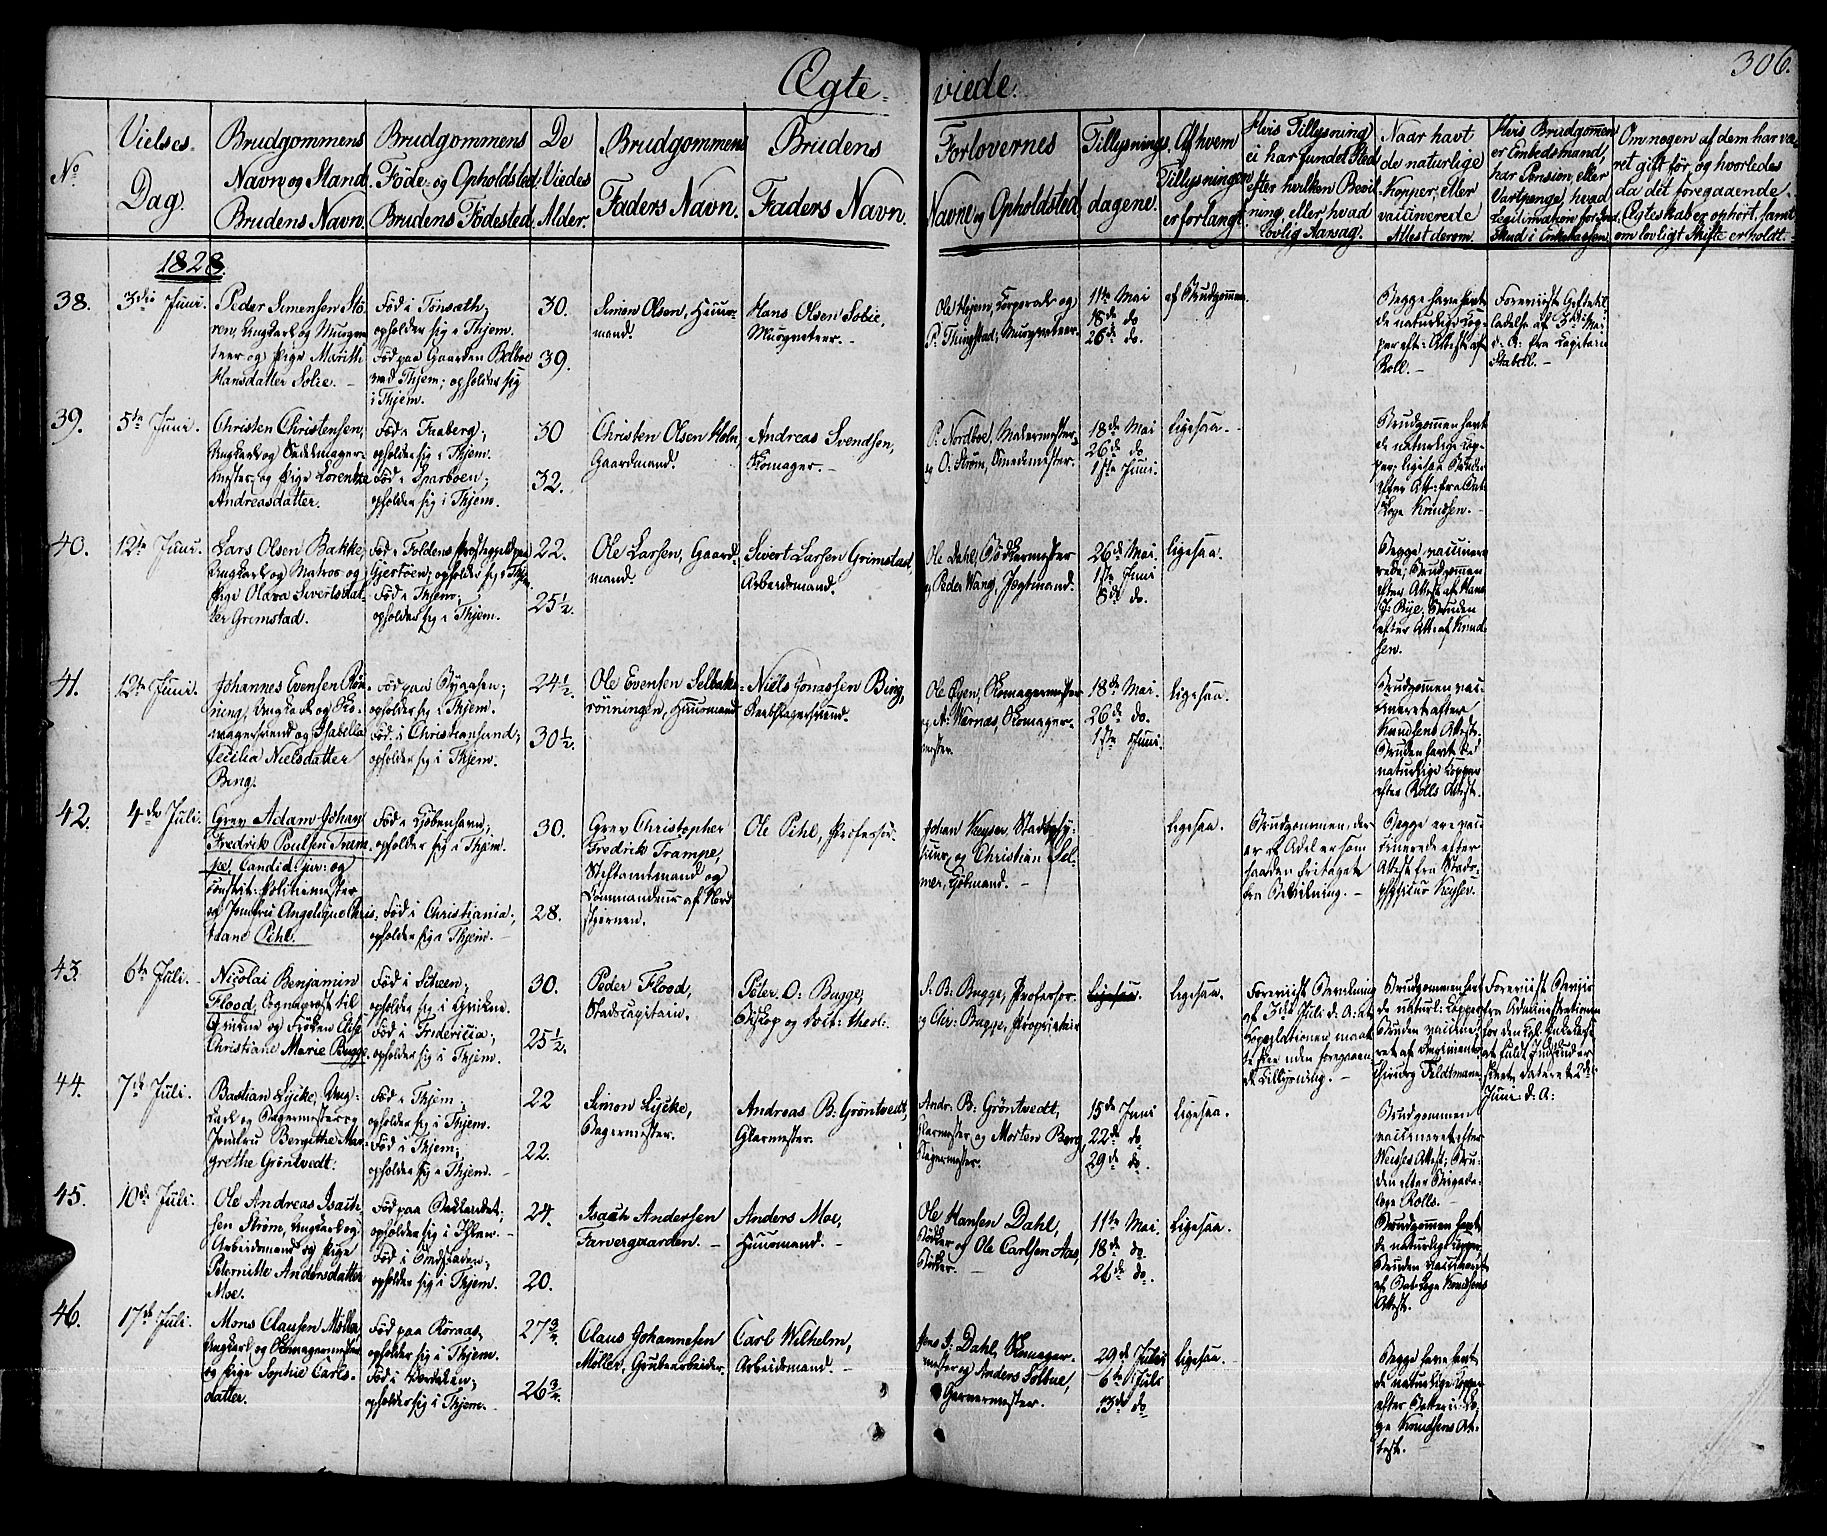 306.
Ægte-
viede.
No
Vielses-
Dag.
Brudgommens
Navn og Stand
Brudens Navn.
Brudgommens
Føde- og Opholdsted,
Brudens Fødested.
De
Viedes
Alder.
Brudgommens
Faders Navn.
Brudens
Faders Navn.
Forlovernes
Navne og Opholdsted
Tillysnings
dagene.
Af hvem
Tillysningen
er forlangt.
Hvis Tillysning
ei har fundet Sted
efter hvilken Bevil-
ning, eller hvad
lovlig Aarsag.
Naar havt
de naturlige
Kopper, eller
vaccinerede
Attest derom.
Hvis Brudgommen
er Embedsmand,
har Pension, eller
Vartpenge, hvad
Legitimation for Ind-
skud i Enkekassen.
Om nogen af dem har væ-
ret gift før, og hvorledes
da det foregaaende
Ægteskab er ophørt, samt
om lovligt Skifte erholdt.
1828
38.
3die Juni.
Peder Simensen Stö-
ren, Ungkarl og Musque-
teer og Pige Marith
Hansdatter Solie. –
Fød i Tönsæth;
opholder sig i Thjem.
Fød paa Gaarden Belboe
ved Thjem; opholder sig
i Thjem.
30.
39.
Simon Olsen, Huus-
mand.
Hans Olsen Solie,
Musqueteer. –
Ole Hojem, Corporal og
P. Thingstad, Musqueteer.
11te Mai
18de do
26de do.
af Brudgommen.
Begge have havt
de naturlige Kop-
per eft: Attest af
Roll. –
Foreviist Gifte til-
ladelse af 3die Mai
d. A: fra Capitain
Stabell. –
39.
5te Juni.
Christen Christensen,
Ungkarl og Sadelmager-
mester, og Pige Lorentze
Andreasdatter.
Fød i Faaberg;
opholder sig i Thjem.
Fød i Sparboen;
opholder sig i Thjem.
30
32.
Christen Olsen Holm,
Gaardmand.
Andreas Svendsen,
Skomager. –
P. Nordboe, Malermester
og O: Strøm, Smedemester.
18de Mai
26de do
1ste Juni.
ligesaa. –
Brudgommen havt
de naturlige Kop-
per; ligesaa Bruden
efter Att: fra Bat
Læge Knudsen. –
40.
12te Juni.
Lars Olsen Bakke,
Ungkarl og Matros og
Pige Olava Sivertsdat-
ter Grimstad.
Fød i Foldens Præstegjeld paa
Gjertöen; opholder sig i Thjem.
Fød i Thjem;
opholder sig i Thjem.
22.
25½.
Ole Larsen, Gaard-
mand.
Sivert Larsen Grimstad,
Arbeidsmand.
Ole Dahl, Bødkermester
og Peder Wang, Jægtmand.
26de Mai
1ste Juni
8de do.
ligesaa.
Begge vaccine-
rede; Brudgommen
efter Attest af Hans
J: Bye, Bruden
efter Att: af Knud-
sen.
41.
12te Juni.
Johannes Evensen Røn-
ning, Ungkarl og Sko-
magersvend og Isabella
Cecilia Nielsdatter
Bing.
Fød paa Bygasen;
opholder sig i Thjem.
Fød i Christiansund;
opholder sig i Thjem.
24½.
30½.
Ole Evensen Selbak-
rönningen, Huusmand
Niels Jonassen Bing,
Rebslagersvend.
Ole Øyen, Skomagermester
og A: Wernæs, Skomager-
mester.
18de Mai.
26de do.
1ste Juni.
ligesaa.
Brudgommen vac-
cineret efter
Knudsens Attest.
Bruden havt de
naturlige Kopper
efter Rolls Attest.
42.
4de Juli.
Grev Adam Johan
Fredrik Poulsen Tram-
pe, Candid: jur: og
Constit: Politiemester
og Jomfru Angelique Chris-
tiane Pihl.
Fød i Kjöbenhavn;
opholder sig i Thjem.
Fød i Christiania;
opholder sig i Thjem. –
30.
28.
Grev Christopher
Fredrik Trampe,
Stiftamtmand og
Commandeur af Nord-
stjernen.
Ole Pihl, Professor.
Johan Keyser, Stadsphy-
sicus, og Christian Sel-
mer, Kjöbmand. –
ligesaa.
Brudgommen, der
er af Adel er som
saadan fritaget
fra Bevilning. –
Begge ere vac-
cinerede efter
Attest fra Stads-
physicus Keyser.
43.
6te Juli.
Nicolai Benjamin
Flood, Sogneprest til
Qvikne og Frøken Else
Christiane Marie Bugge.
Fød i Scheen;
opholder sig i Qvikne.
Fød i Fredericia;
opholder sig i Thjem.
30.
25½.
Peder Flood,
Stadscapitain.
Peter O: Bugge,
Biskop og Doct: theol:
S. B. Bugge, Professor.
og Chr: Bugge, Proprietair
ligesaa.
ligesaa.
Foreviist Bevilning
af 3die Juli d: A: at
Copulationen maatte
skee uden foregaaen-
de Tillysning. –
Brudgommen havt
de naturl: Kopper
Bruden vaccine-
ret af Regiments
chirurg Feldtmann.
Foreviist Qvittering
fra Administrationen
for den kgl: Enkekasse
at fuldt Indskud er
skeet, dateret 2den
Juni d: A:
44.
7de Juli.
Bastian Lycke, Ung-
karl og Bagermester og
Jomfru Bergithe Mar-
grethe Gröntvedt.
Fød i Thjem;
opholder sig i Thjem.
Fød i Thjem;
opholder sig i Thjem. –
22
22.
Simon Lycke,
Bagermester.
Andreas B: Gröntvedt,
Glarmester.
Andr: B: Gröntvedt,
Glarmester og Morten Berg,
Bagermester.
15de Juni
22de do
29de do.
ligesaa.
Brudgommen
vaccineret efter
Weisses Attest; Bru-
den efter Brigade-
læge Rolls.
45.
10de Juli.
Ole Andreas Isach-
sen Strøm, Ungkarl og
Arbeidsmand og Pige
Peternille Andersdatter
Moe.
Fød paa Baklandet;
opholder sig i Ihlen. –
Fød i Oudstaden;
opholder sig i Thjem.
24.
20.
Isach Andersen
Farvergaarden. –
Anders Moe,
Huusmand. –
Ole Hansen Dahl,
Bødker og Ole Carlsen Aas,
Bødker.
11te Mai.
18de do
26de do.
ligesaa. –
Brudgommen havt
de naturlige Kopper
Bruden vaccineret
af Bat: Læge Knudsens
Attest.
46.
17de Juli.
Mons Clausen Möller,
Ungkarl og Skomagermester
og Pige Sophie Carls-
datter.
Fød paa Röraas;
opholder sig i Thjem.
Fød i Værdalen;
opholder sig i Thjem. –
27¾.
26¾.
Claus Johannesen
Möller, Grubearbeider.
Carl Wilhelm,
Arbeidsmand. –
Jens J: Dahl, Skomager-
mester og Anders Solbue,
Garvermester.
29de Juni
6te Juli
13de do
ligesaa. –
Begge have havt
de naturlige Kopper
efter Batteri: Læ-
ge Knudsens At-
test. –